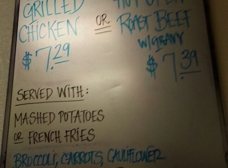 GRILLED
CHICKEN OR ROAST BEEF
W/GRAVY
$7.29 $7.39
SERVED WITH:
MASHED POTATOES
OR FRENCH FRIES
BROCCOLI, CARROTS, CAULIFLOWER